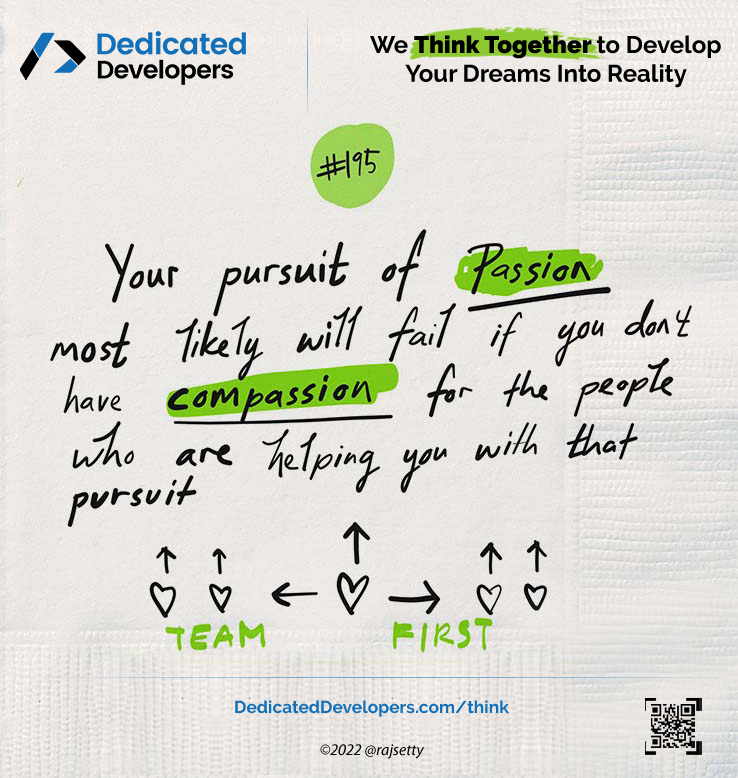 Dedicated
Developers
We Think Together to Develop
Your Dreams Into Reality
#195
Your pursuit of Passion
most likely will fail if you don't
have compassion for the people
who are helping you with that
pursuit
TEAM FIRST
DedicatedDevelopers.com/think
©2022 @rajsetty